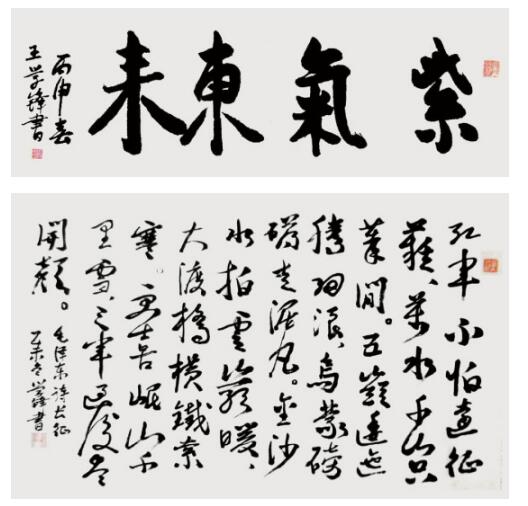 紫氣東来
丙申春
王学鋒書
红军不怕遠征
難、萬水千山只
等閒。五嶺逶迤
腾细浪、烏蒙磅
礴走泥丸。金沙
水拍雲崖暖、
大渡橋横鐵索
寒。更喜岷山千
里雪、三军过後尽
開颜。
毛泽东诗长征
乙未冬学鋒書